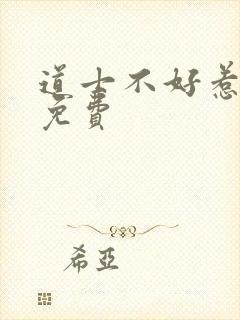 道士不好惹
免費
希亞